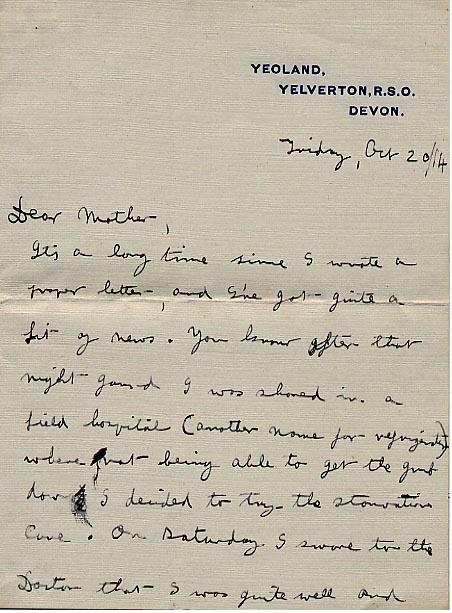 YEOLAND,
YELVERTON, R.S.O.
DEVON.
Friday, Oct 20/14
Dear Mother,
Its a long time since I wrote a
proper letter, and I've got quite a
bit of news. You know after that
night guard I was shoved in a
field hospital (another name for refrigerator)
where not being able to get the grub
down I decided to try the starvation
cure. On Saturday I swore to the
Doctor that I was quite well and